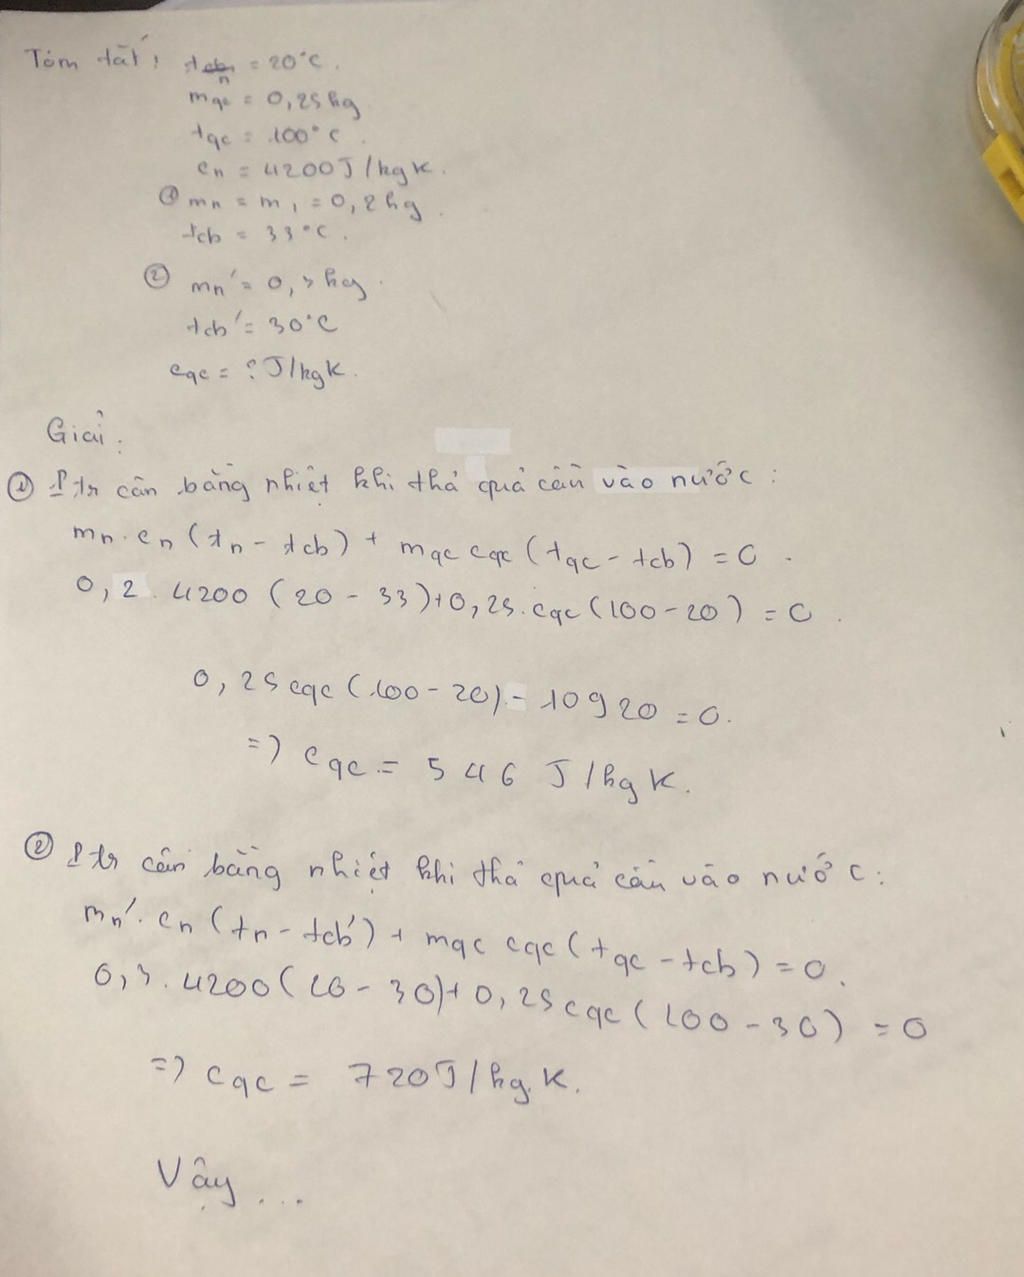 Tóm tắt: tn = 20°C.
mqc = 0,25 kg
tqc = 100°C.
cn = 4200J/kgK.
① mn = m1 = 0,2kg.
tcb = 33°C.
② mn' = 0,3 kg.
tcb' = 30°C
cqc = ? J/kgK.
Giải:
① Ptr cân bằng nhiệt khi thả quả cầu vào nước:
mn.cn (tn - tcb) + mqc cqc (tqc - tcb) = 0.
0,2. 4200 (20 - 33)+0,25.cqc (100-20) = 0.
0,25 cqc (100 - 20) - 10920 = 0.
=> cqc = 546 J/kgK.
② Ptr cân bằng nhiệt khi thả quả cầu vào nước:
mn'. cn (tn - tcb') + mqc cqc (tqc - tcb) = 0.
0,3. 4200 (20 - 30)+ 0,25 cqc (100 - 30) = 0
=> cqc = 720J/kg.K.
Vậy ...